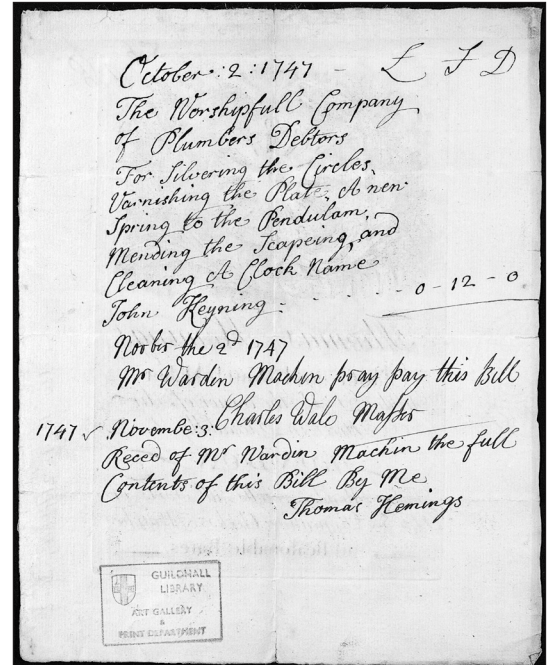 October : 2 : 1747 - £ S D
The Worshipfull Company
of Plumbers Debtors
For Silvering the Circles,
Varnishing the Plate, A new
Spring to the Pendulam,
Mending the Scapeing, and
Cleaning A Clock Name
John Heyning - . . . - 0 - 12 - 0
Novbr the 2d 1747
Mr Warden Machin pray pay this Bill
Charles Wale Master
1747 Novembe: 3:
Reced of Mr Wardin Machin the full
Contents of this Bill By Me
Thomas Hemings
GUILDHALL
LIBRARY
ART GALLERY
&
PRINT DEPARTMENT